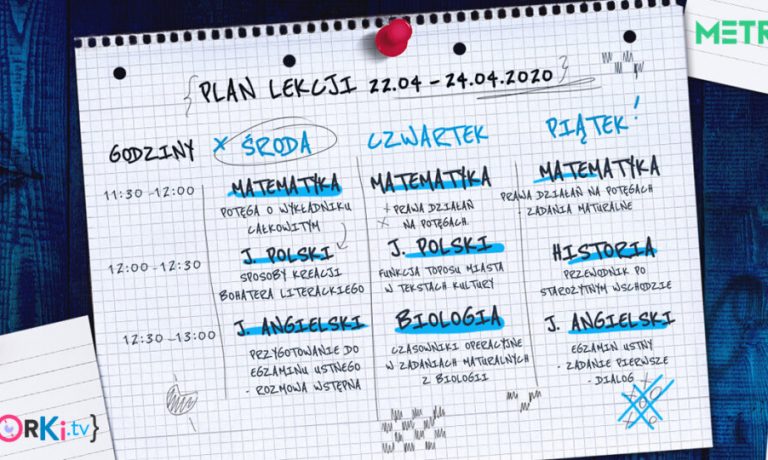 METR
{PLAN LEKCJI 22.04 - 24.04.2020}
GODZINY x ŚRODA CZWARTEK PIĄTEK!
11:30 - 12:00
MATEMATYKA
POTĘGA O WYKŁADNIKU
CAŁKOWITYM
MATEMATYKA
+ PRAWA DZIAŁAŃ
x NA POTĘGACH
MATEMATYKA
PRAWA DZIAŁAŃ NA POTĘGACH
- ZADANIA MATURALNE
12:00 - 12:30
J. POLSKI
SPOSOBY KREACJI
BOHATERA LITERACKIEGO
J. POLSKI
FUNKCJA TOPOSU MIASTA
W TEKSTACH KULTURY
HISTORIA
PRZEWODNIK PO
STAROŻYTNYM WSCHODZIE
12:30 - 13:00
J. ANGIELSKI
PRZYGOTOWANIE DO
EGZAMINU USTNEGO
- ROZMOWA WSTĘPNA
BIOLOGIA
CZASOWNIKI OPERACYJNE
W ZADANIACH MATURALNYCH
Z BIOLOGII
J. ANGIELSKI
EGZAMIN USTNY
- ZADANIE PIERWSZE
- DIALOG
ORKi.tv}